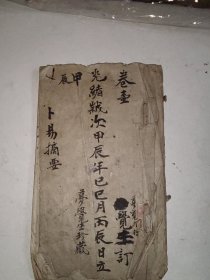 卷壹
光緒歲次甲辰年己巳月丙辰日立
甲辰
卜易摘要
夢覺生珍藏
覺生訂